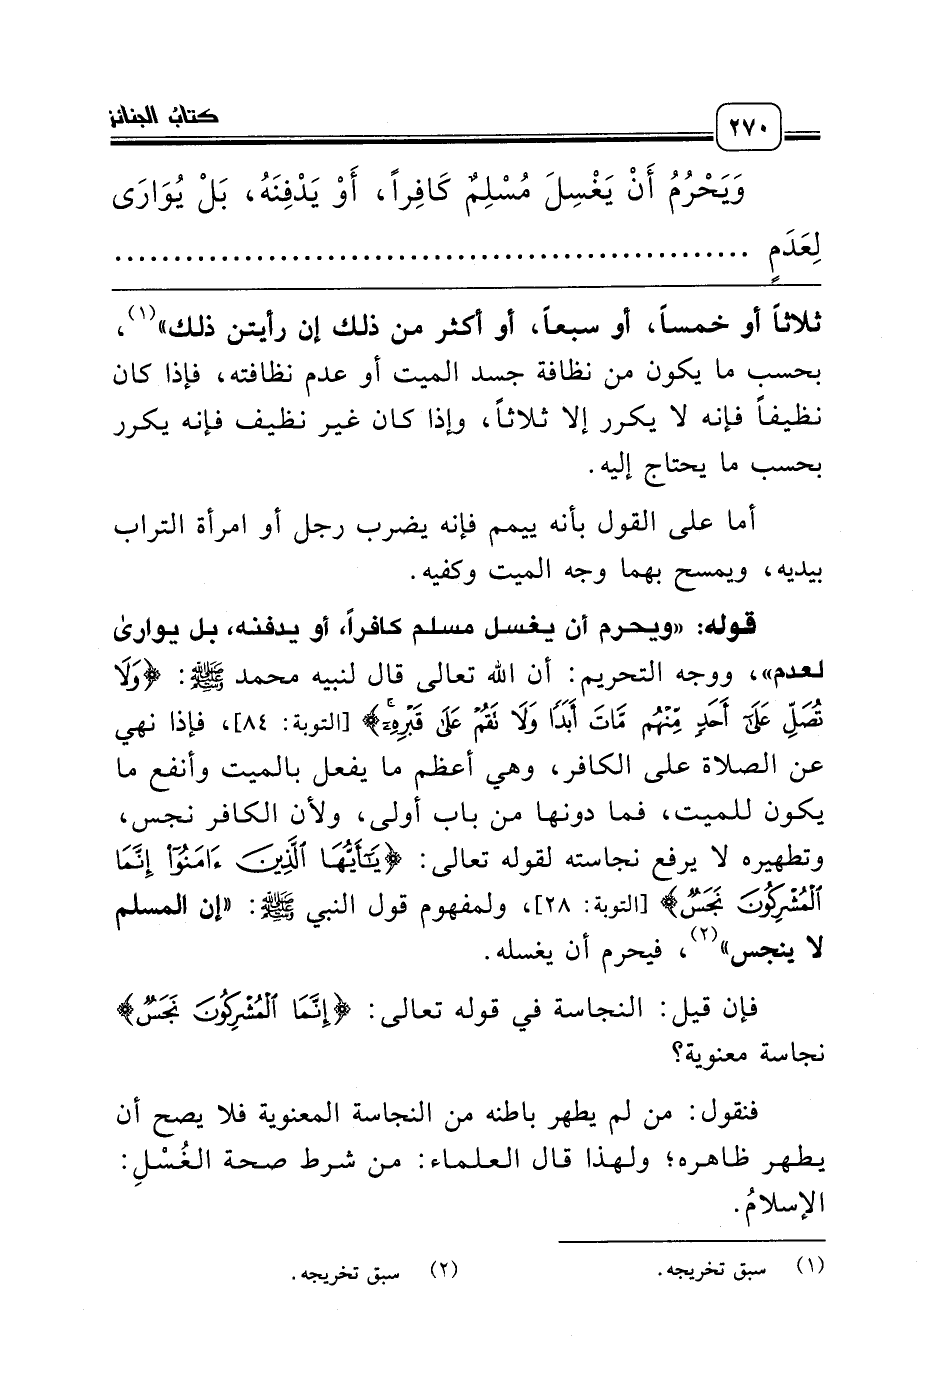 ٢٧٠ كتاب الجنائز
وَيَحْرُمُ أَنْ يَغْسِلَ مُسْلِمٌ كَافِراً، أَوْ يَدْفِنَهُ، بَلْ يُوَارَى
لِعَدَمٍ .....................................................
ثلاثاً أو خمساً، أو سبعاً، أو أكثر من ذلك إن رأيتن ذلك»(١)،
بحسب ما يكون من نظافة جسد الميت أو عدم نظافته، فإذا كان
نظيفاً فإنه لا يكرر إلا ثلاثاً، وإذا كان غير نظيف فإنه يكرر
بحسب ما يحتاج إليه.
أما على القول بأنه ييمم فإنه يضرب رجل أو امرأة التراب
بيديه، ويمسح بهما وجه الميت وكفيه.
قوله: «ويحرم أن يغسل مسلم كافراً، أو يدفنه، بل يوارىٰ
لعدم»، ووجه التحريم: أن الله تعالى قال لنبيه محمد ﷺ: ﴿وَلَا
تُصَلِّ عَلَىٰٓ أَحَدٍ مِّنْهُم مَّاتَ أَبَدًا وَلَا تَقُمْ عَلَىٰ قَبْرِهِۦٓۚ﴾ [التوبة: ٨٤]، فإذا نهي
عن الصلاة على الكافر، وهي أعظم ما يفعل بالميت وأنفع ما
يكون للميت، فما دونها من باب أولى، ولأن الكافر نجس،
وتطهيره لا يرفع نجاسته لقوله تعالى: ﴿يَٰٓأَيُّهَا ٱلَّذِينَ ءَامَنُوٓا۟ إِنَّمَا
ٱلْمُشْرِكُونَ نَجَسٌ﴾ [التوبة: ٢٨]، ولمفهوم قول النبي ﷺ: «إن المسلم
لا ينجس»(٢)، فيحرم أن يغسله.
فإن قيل: النجاسة في قوله تعالى: ﴿إِنَّمَا ٱلْمُشْرِكُونَ نَجَسٌ﴾
نجاسة معنوية؟
فنقول: من لم يطهر باطنه من النجاسة المعنوية فلا يصح أن
يطهر ظاهره؛ ولهذا قال العلماء: من شرط صحة الغُسْلِ:
الإسلامُ.
(١) سبق تخريجه. (٢) سبق تخريجه.